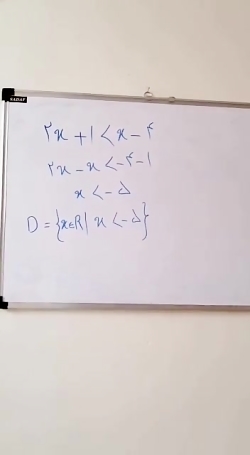 SADAF
۲x + 1 < x - ۴
۲x - x < -۴ - 1
x < - ۵
D = {x∈R | x < - ۵}